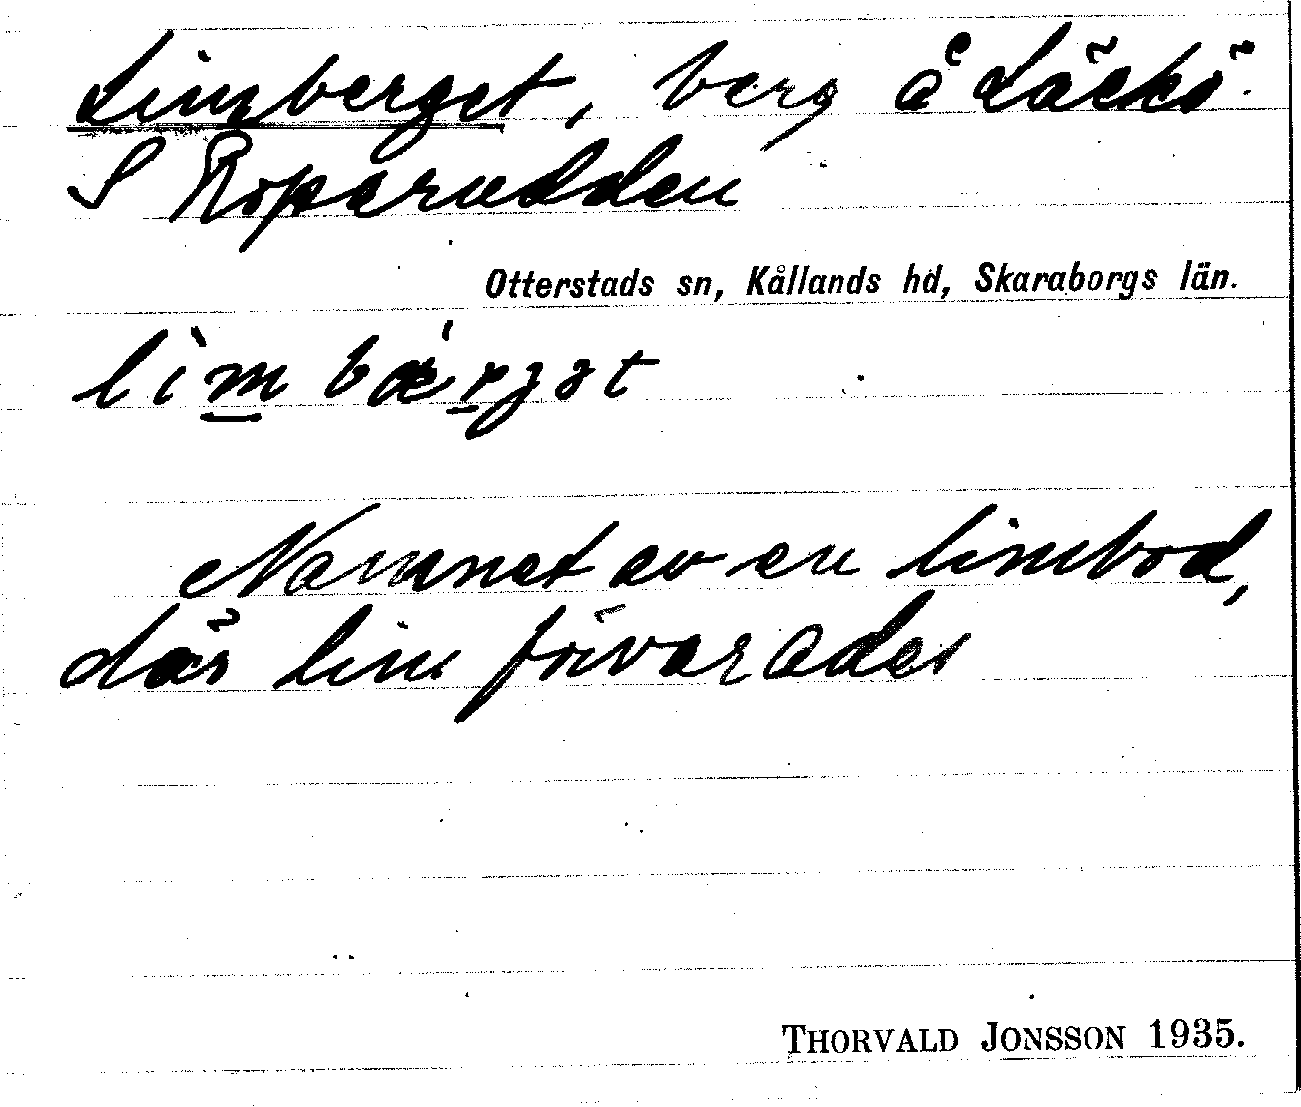 Limberget, berg å Läckö.
S Roparudden
Otterstads sn, Kållands hd, Skaraborgs län.
lìm bǽrjət
Namnet av en limbod,
där lim förvarades
THORVALD JONSSON 1935.